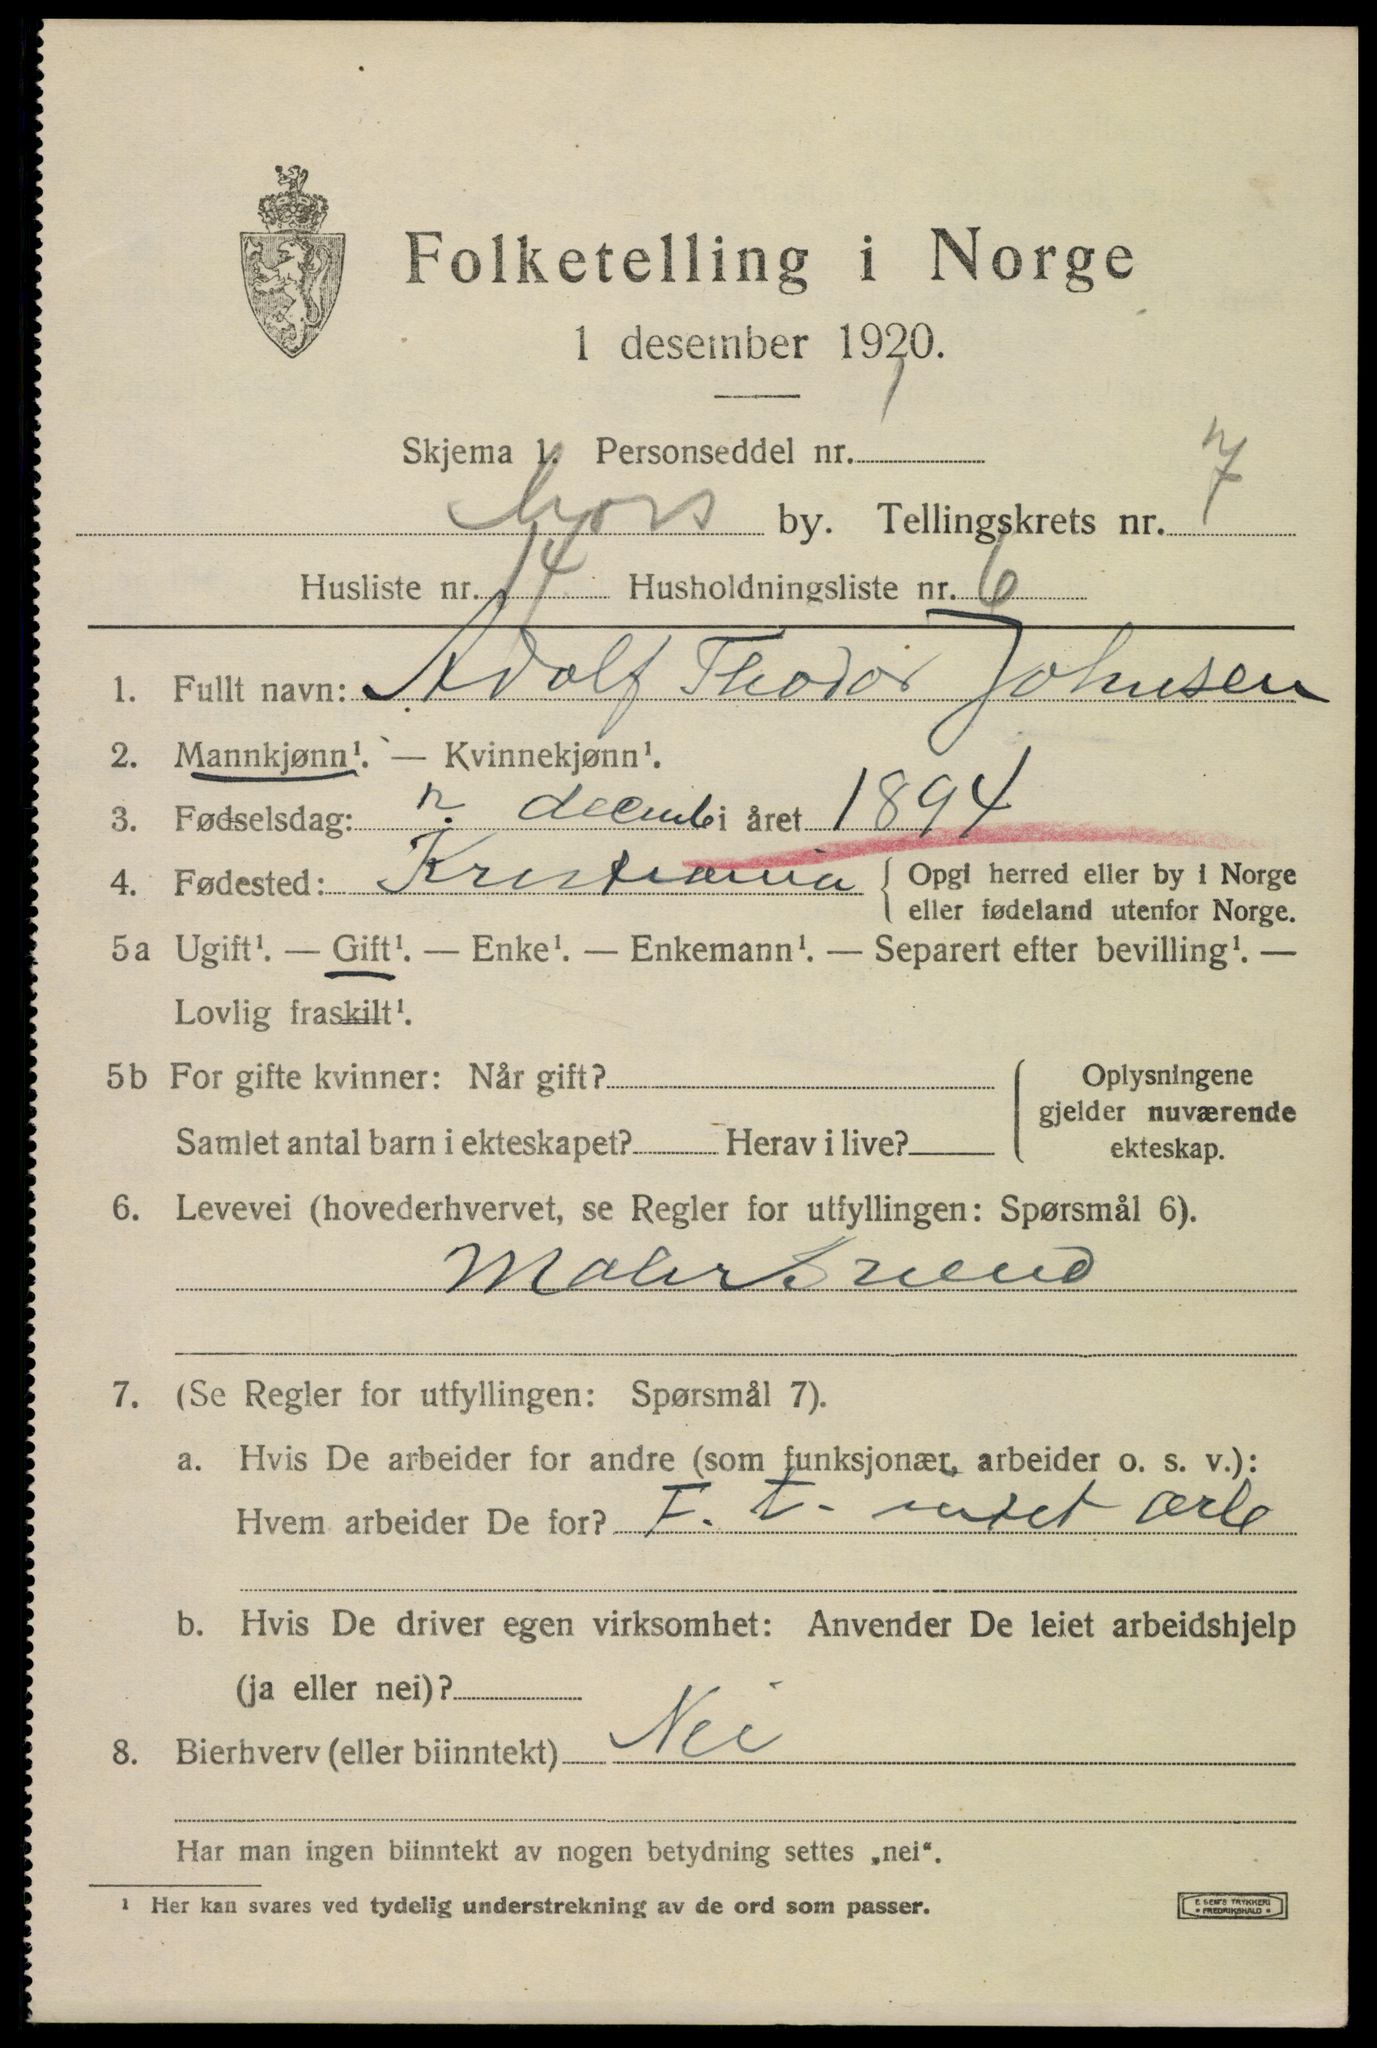 Folketelling i Norge
1 desember 1920.
Skjema 1. Personseddel nr. 1
Moss by. Tellingskrets nr. 7
Husliste nr. 14 Husholdningsliste nr. 6
1. Fullt navn: Adolf Thodor Johnsen
2. Mannkjønn¹. — Kvinnekjønn¹.
3. Fødselsdag: decemb i året 1894
4. Fødested: Kristiania { Opgi herred eller by i Norge
eller fødeland utenfor Norge.
5a Ugift¹. — Gift¹. — Enke¹. — Enkemann¹. — Separert efter bevilling¹. —
Lovlig fraskilt¹.
5b For gifte kvinner: Når gift? { Oplysningene
gjelder nuværende
Samlet antal barn i ekteskapet? Herav i live? ekteskap.
6. Levevei (hovederhvervet, se Regler for utfyllingen: Spørsmål 6).
Maler
7. (Se Regler for utfyllingen: Spørsmål 7).
a. Hvis De arbeider for andre (som funksjonær, arbeider o. s. v.):
Hvem arbeider De for? F. t. intet
b. Hvis De driver egen virksomhet: Anvender De leiet arbeidshjelp
(ja eller nei)?
8. Bierhverv (eller biinntekt) Nei
Har man ingen biinntekt av nogen betydning settes „nei“.
¹ Her kan svares ved tydelig understrekning av de ord som passer.
E SEM'S TRYKKERI
• FREDRIKSHALD •